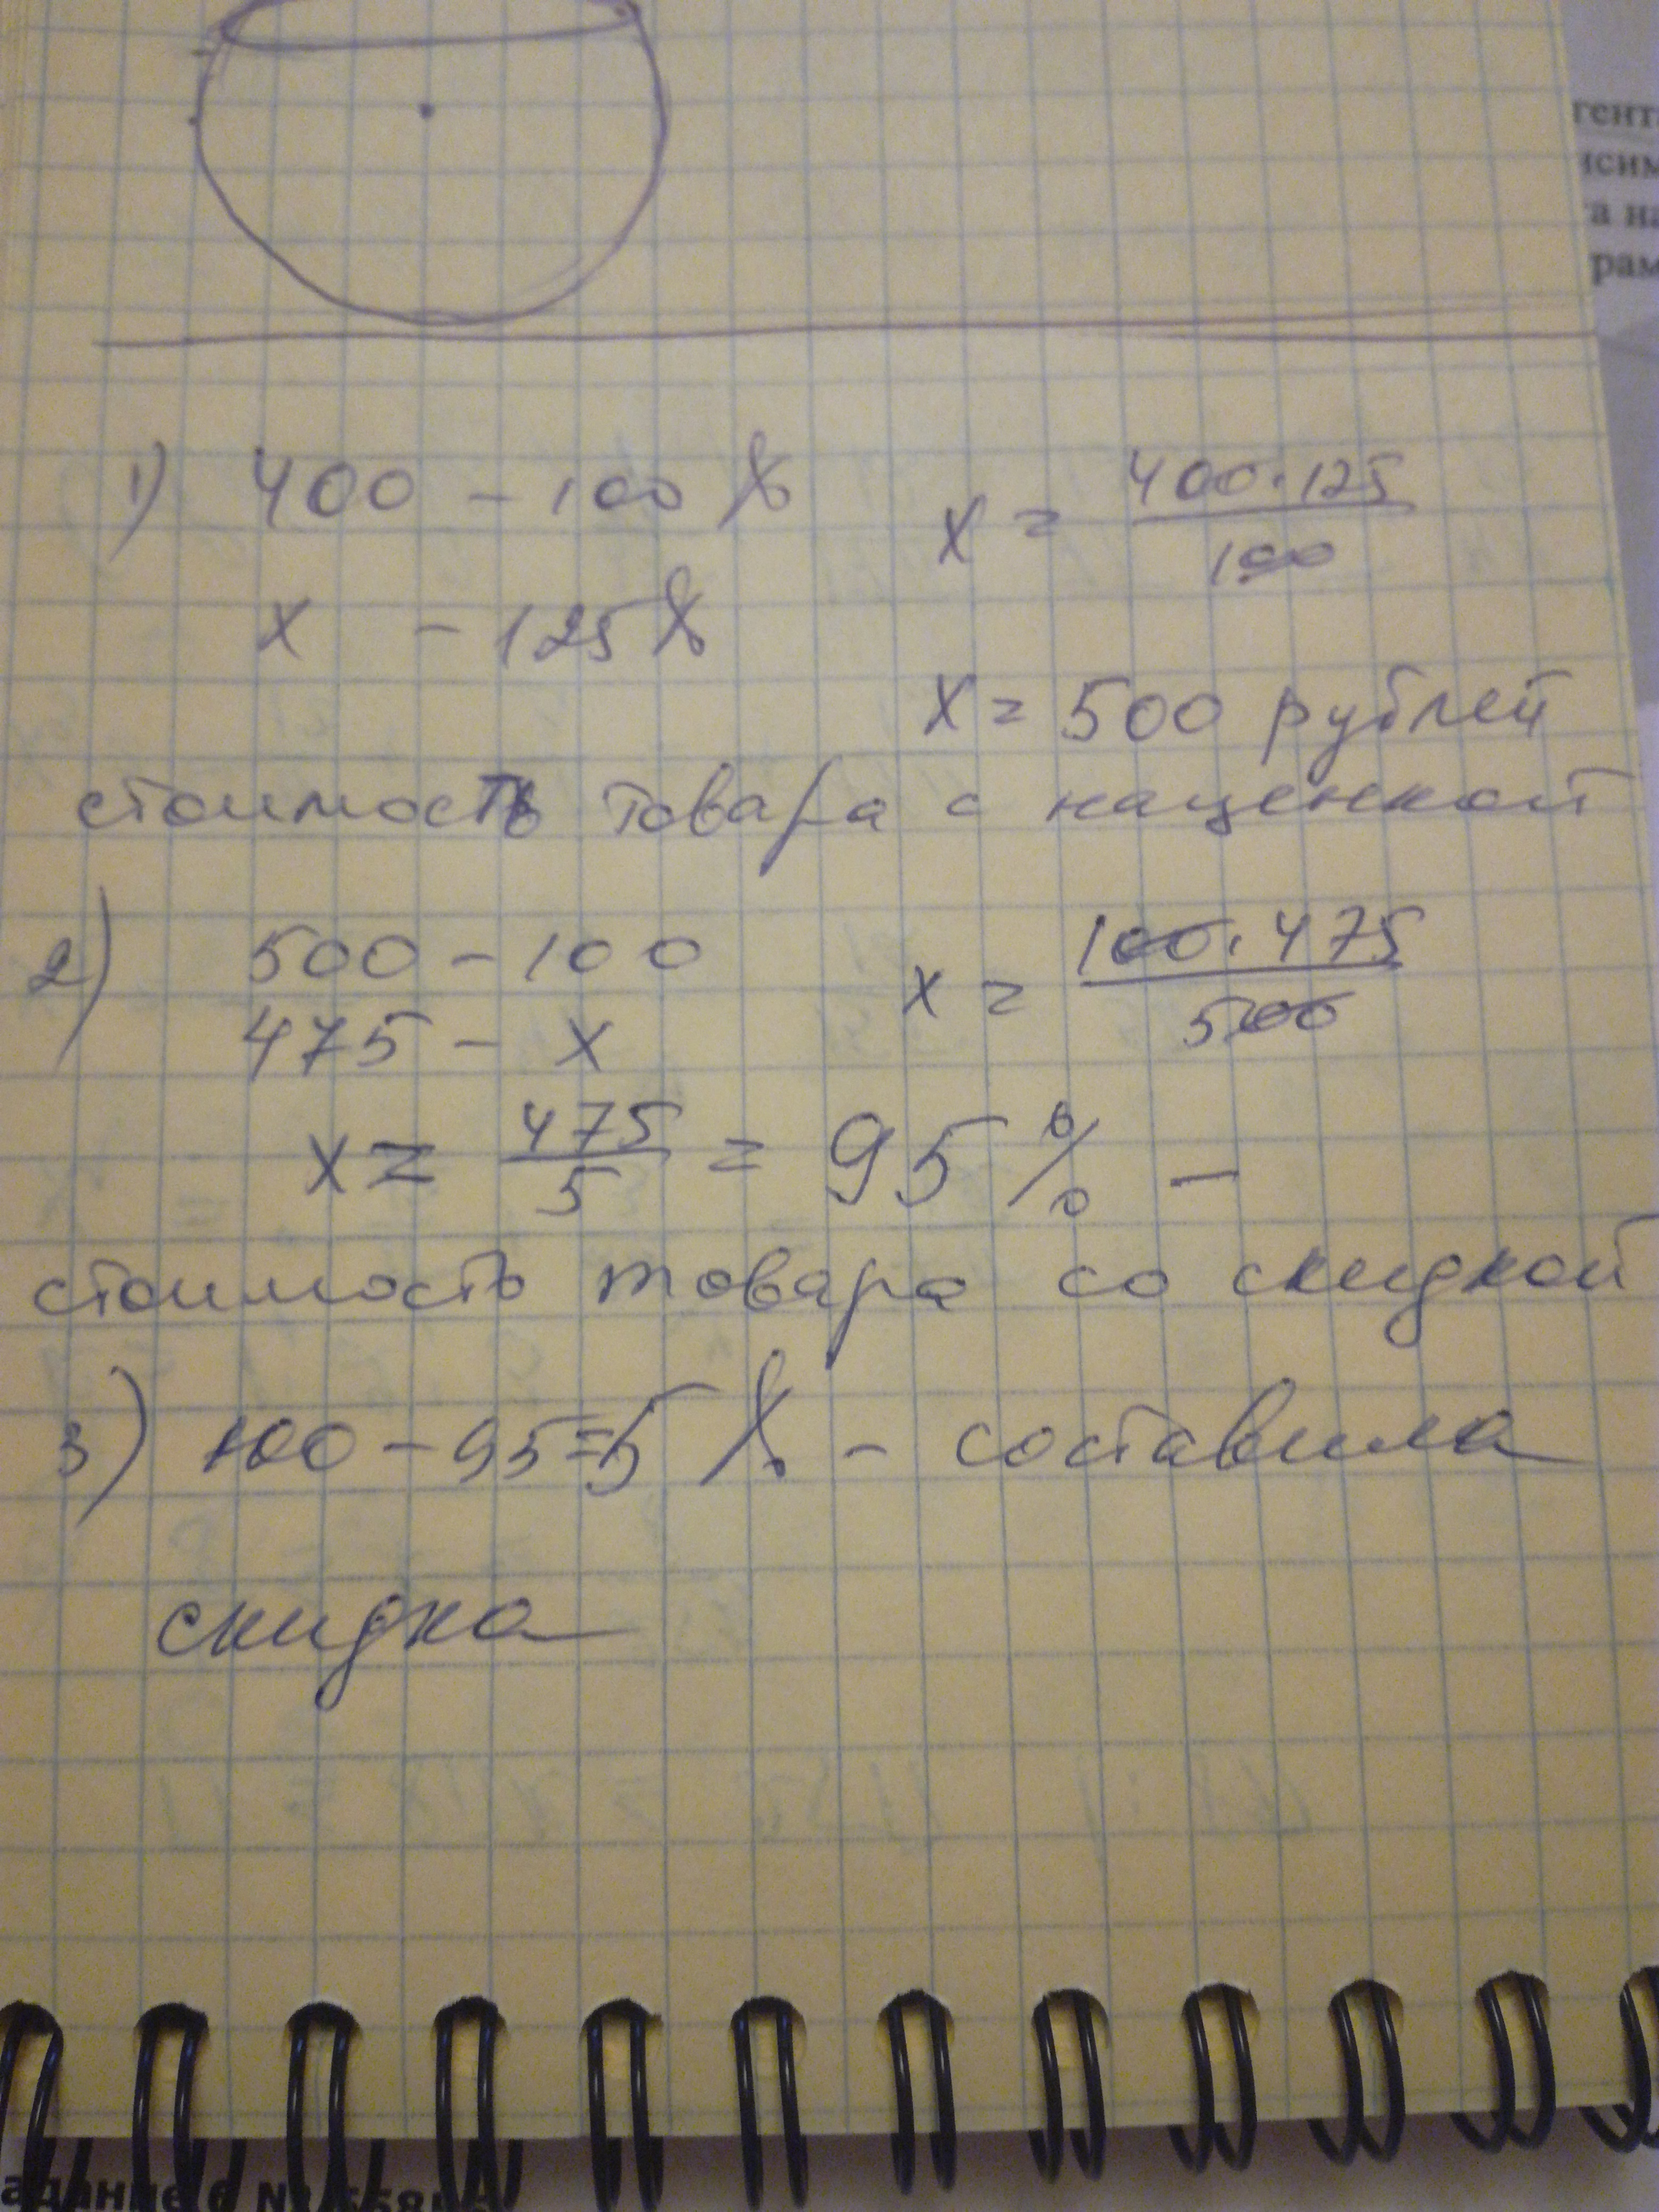 гент
исим
а на
рам
1) 400 - 100% x = 400·125 / 100
x - 125%
x = 500 рублей
стоимость товара с наценкой
2) 500 - 100 x = 100·475 / 500
475 - x
x = 475 / 5 = 95% -
стоимость товара со скидкой
3) 100 - 95 = 5% - составила
скидка
адание 6 №